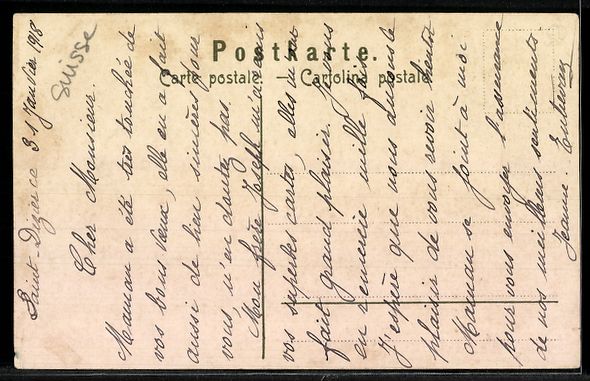 Postkarte.
Carte postale. — Cartolina postale.
Suisse
Saint-Dizier ce 31 Janvier 1918
Cher Monsieur.
Maman a été très touchée de
vos bons vœux, elle en a fait
aussi de bien sincères pour
vous n'en doutez pas.
Mon frère
vos superbes cartes, elles m'ont
fait grand plaisir. Je vous
en remercie mille fois.
J'espère que nous aurons le
plaisir de vous revoir bientôt
Maman se joint à moi
pour vous envoyer l'assurance
de nos meilleurs sentiments
Jeanne.